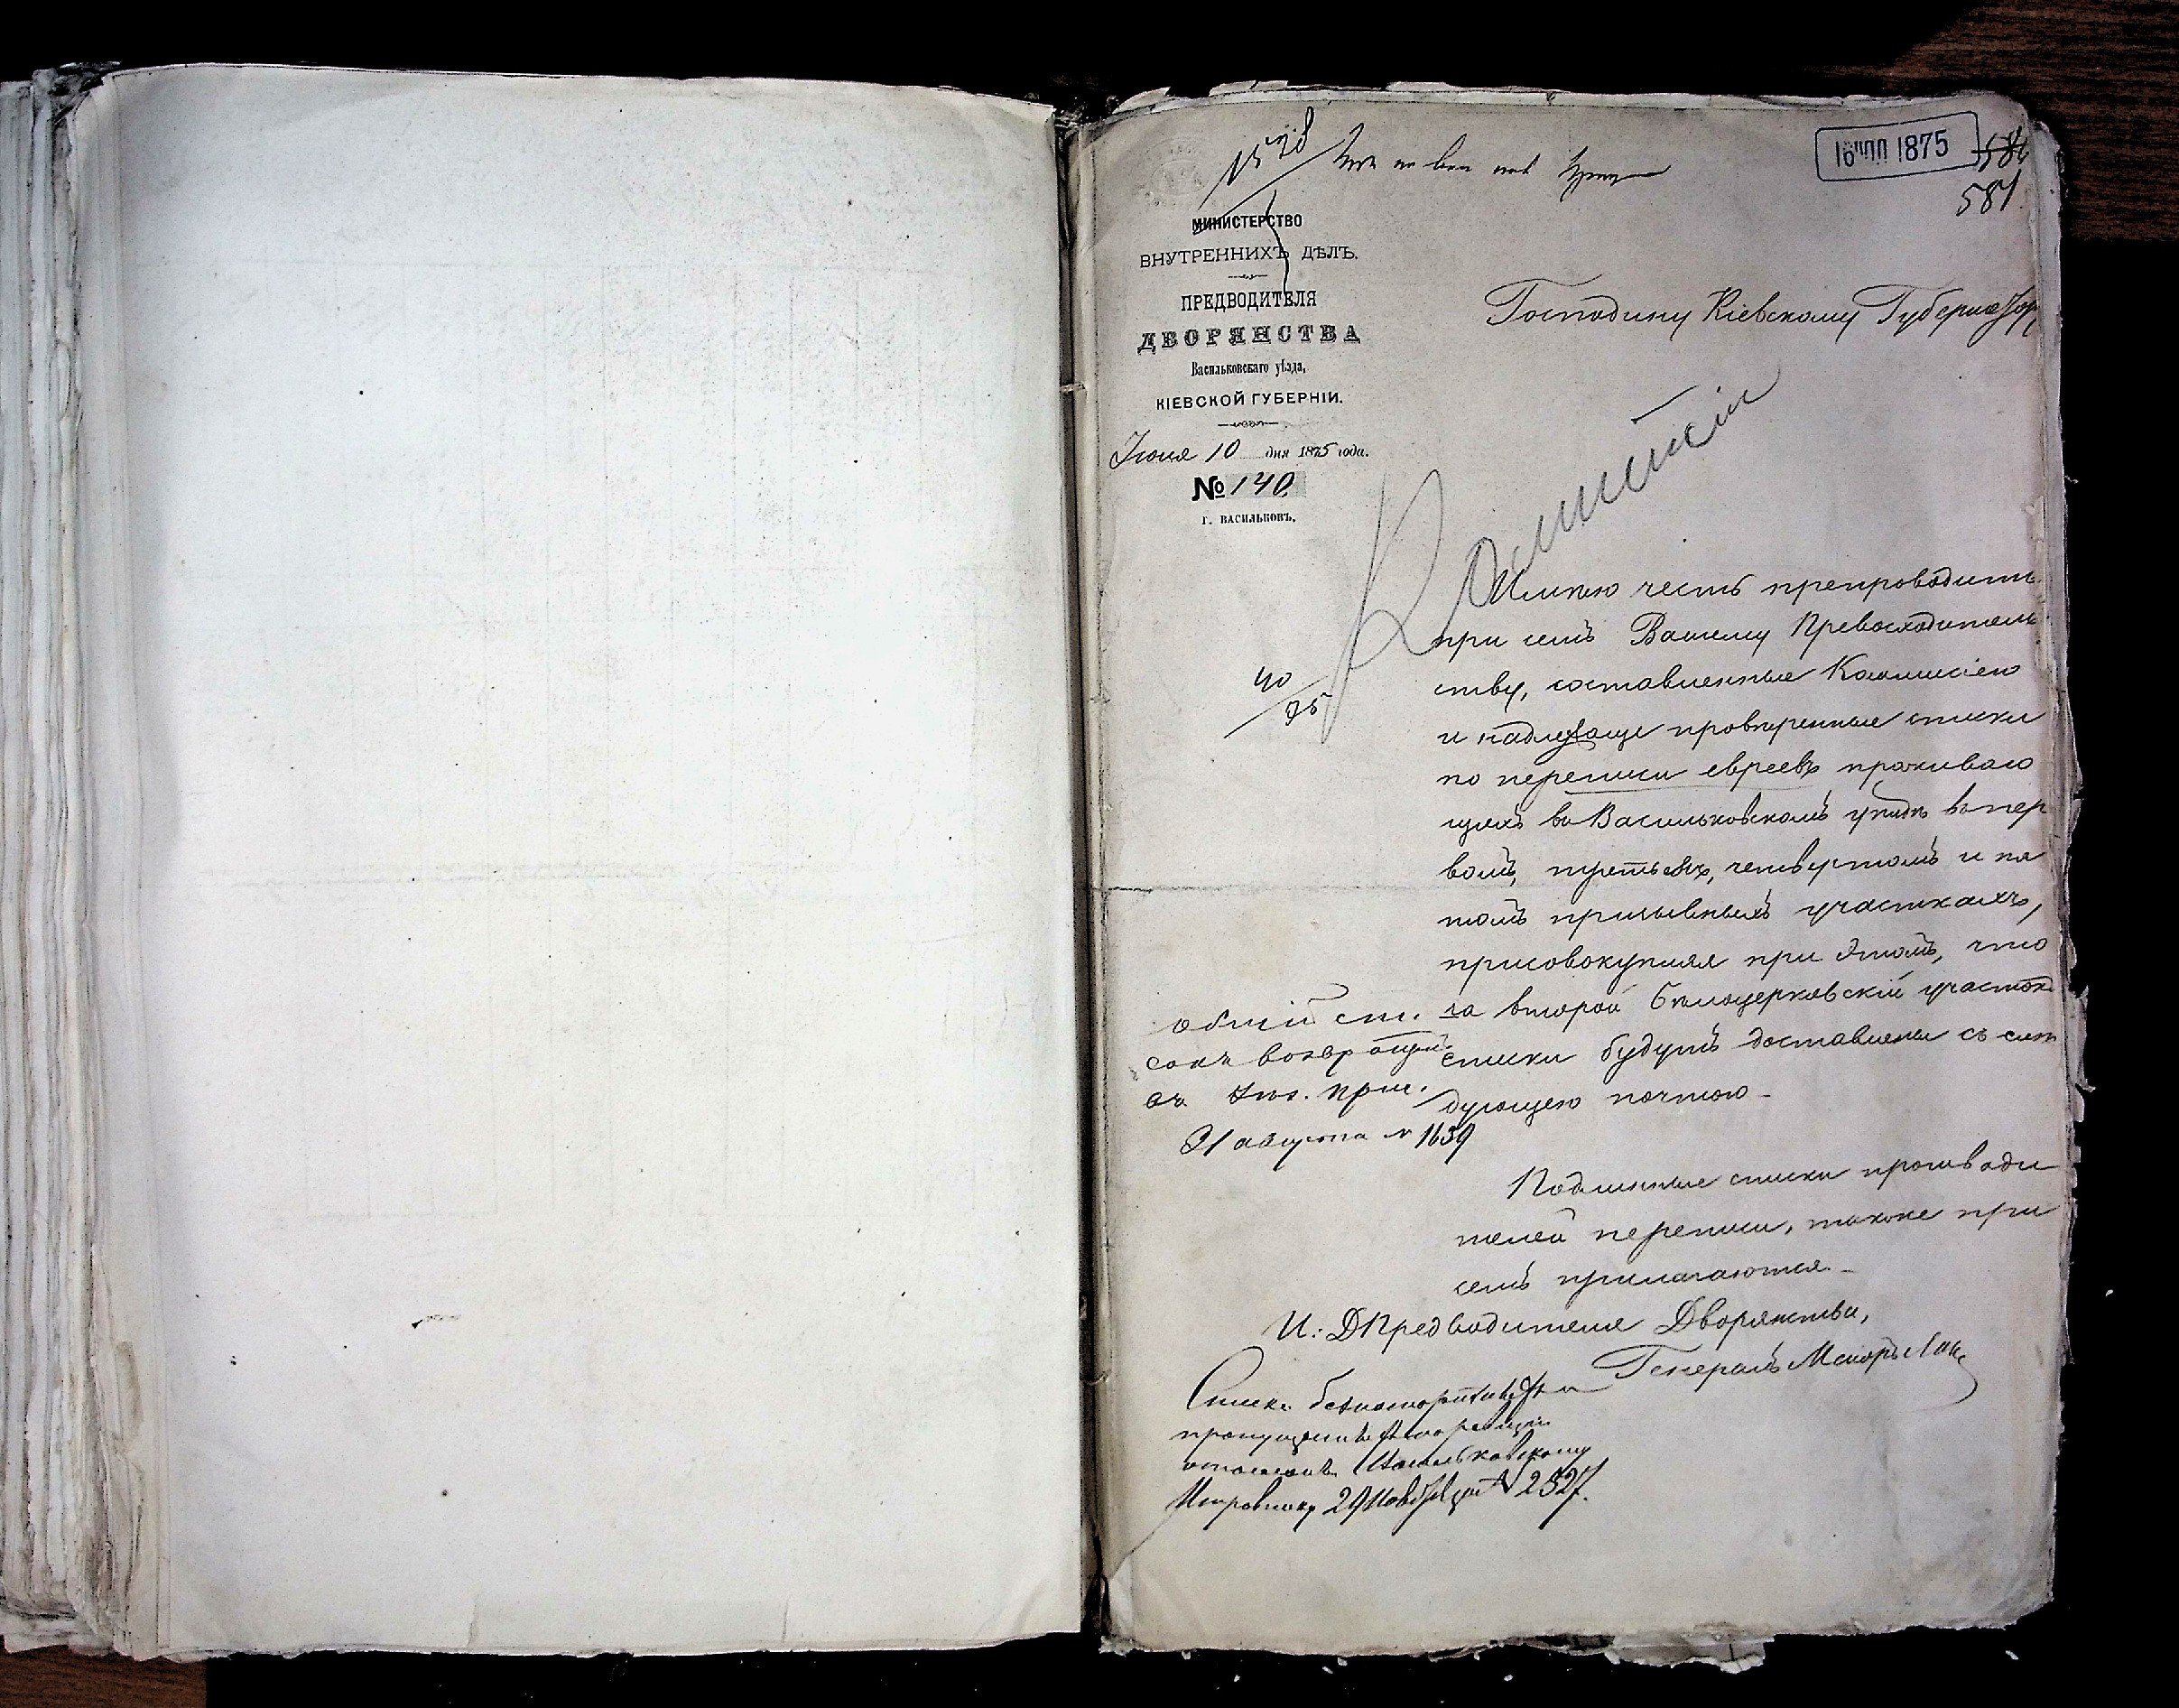 1875
581
МИНИСТЕРСТВО
ВНУТРЕННИХЪ ДѢЛЪ.
ПРЕДВОДИТЕЛЯ
ДВОРЯНСТВА
Васильковскаго уѣзда,
КІЕВСКОЙ ГУБЕРНІИ.
Іюня 10 дня 1875 года.
№ 140.
Г. ВАСИЛЬКОВЪ.
Господину Кіевскому Губернатору
Коммисіи
40/75
Имѣю честь препроводить
при семъ Вашему Превосходитель
ству, составленные Коммисіею
и надлежаще провѣренные списки
по переписи евреевъ проживаю
щихъ въ Васильковскомъ уѣздѣ въ пер
вомъ, третьемъ, четвертомъ и пя
томъ призывныхъ участкахъ,
присовокупляя при этомъ, что
за второй Бѣлоцерковскій участокъ
списки будутъ доставлены съ слѣ
дующею почтою
21 августа № 1639
Подлинные списки производи
телей переписи, также при
семъ прилагаются
И: Д Предводителя Дворянства,
Генералъ Маіоръ
Васильковскому
Исправнику 29 Ноября № 2527.